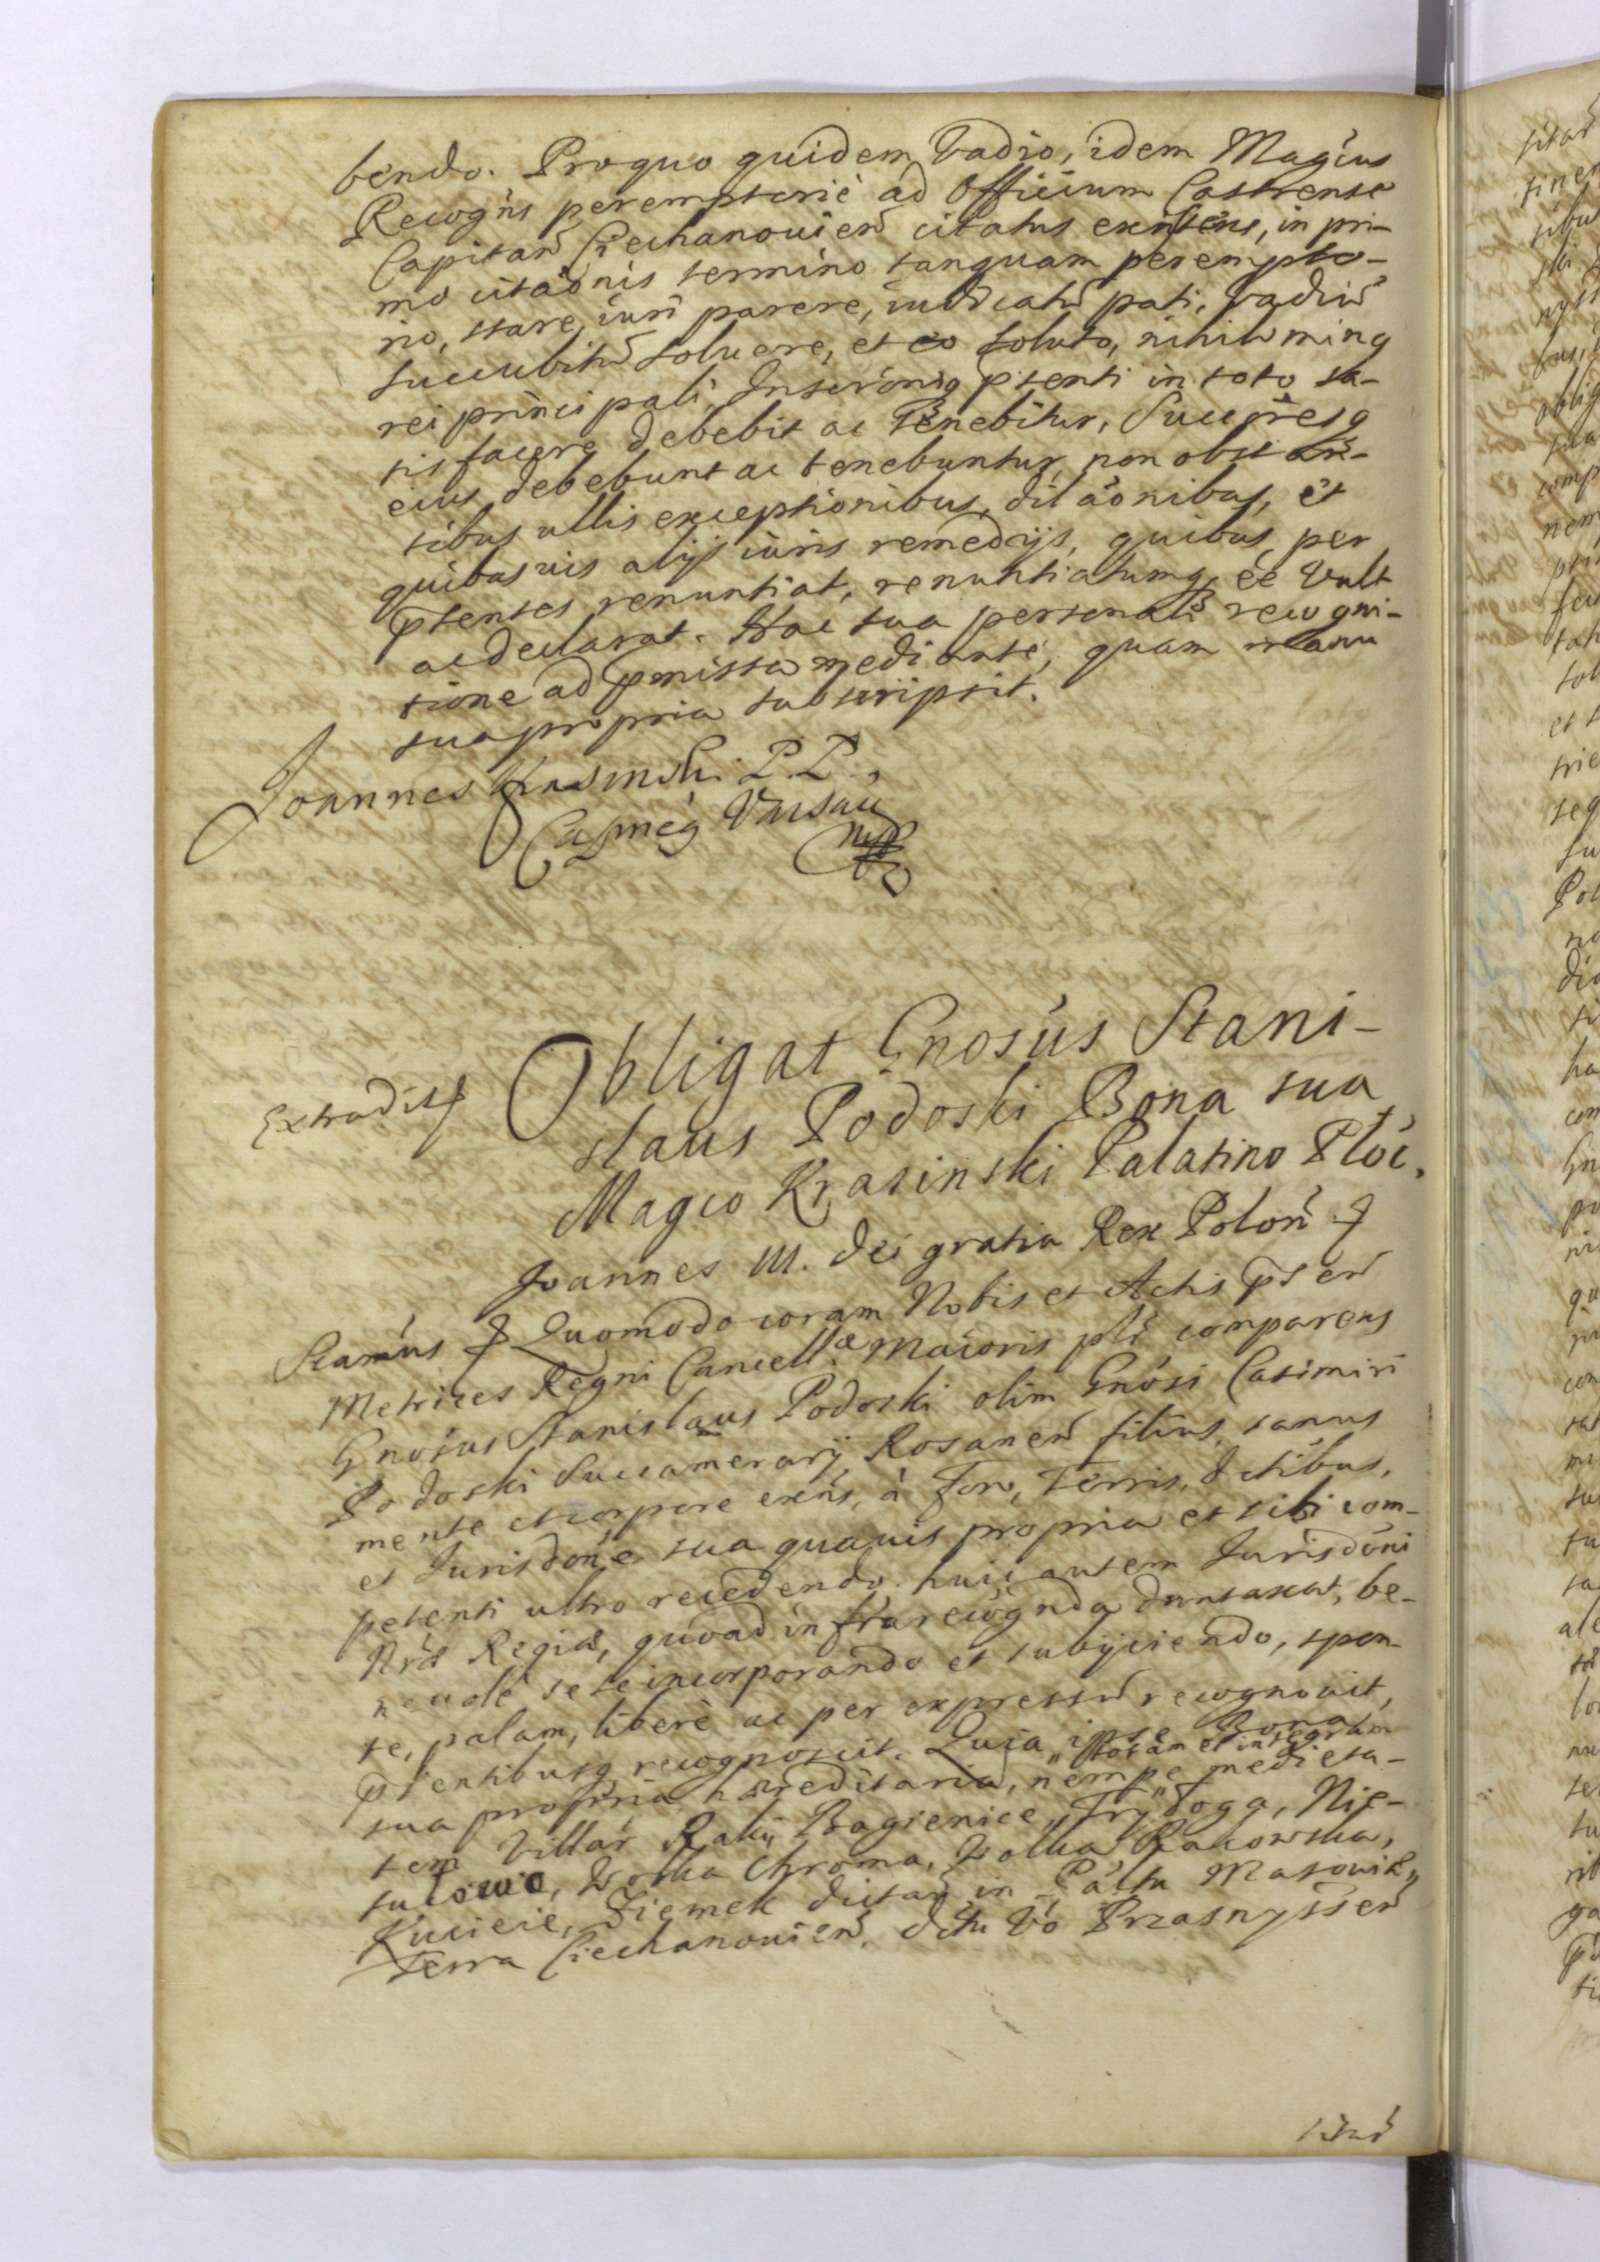 bendo. Pro quo quidem Vadio, idem Magćus
Recogńs peremptoriè ad Officium Castrense
Capitań Ciechanouień citatus existens, in pri-
mo citaõnis termino tanquam perempto-
rio, stare, iuri parere, iudicatũ pati, vadiũ
succubitũ soluere, et eo soluto, nihilominq
rei principali, Inscrõniq ptenti in toto sa-
tisfacere debebit ac tenebitur, Succresq
eius debebunt ac tenebuntur, non obstan-
tibus ullis exceptionibus, dilaõnibus, et
quibusuis alijs iuris remedijs, quibus per
ptentes renuntiat, renuntiatumq eẽ Vult
ac declarat. Hac sua personali recogni-
tione ad pmissa mediante, quam manu
sua propria subscripsit.
Joannes Krasinski P. P.,
Varsau
mp
Extradit
Obligat Gnosús Stani-
slaus Podoski Bona sua
Magco Krasinski Palatino Płoć,
Joannes III. Dei gratia Rex Poloń
Quomodo coram Nobis et Actis pseń
Metrices Regni Cancellæ Maioris plr comparens
Gnosus Stanislaus Podoski olim Gnósi Casimiri
Podoski Succamerarij Rosaneń filius, sanus
mente et corpore exńs, à Foro, Terris, dctibus,
et Jurisdõne sua quauis propria et sibi com-
petenti ultro recedendo, huic autem Jurisdõni
Nræ Regiæ, quoad infra recogńda duntaxat, be-
neuolè sese incorporando et subijciendo, spon-
te, palam, liberè ac per expressũ recognouit,
ptentibusq recognoscit. Quia ipse Bona
sua propria hæreditaria, nempe „totam et integram„ medieta-
tem Villar Raki, Bagienice, Frydoga, Nie-
sułowo, Wolka Chroma, Wolka Rakowska,
Kuciecie, Ziemek dictar in Pałtu Masouiæ,
Terra Ciechanouień, dctu Vó Przasnysseń
sitar